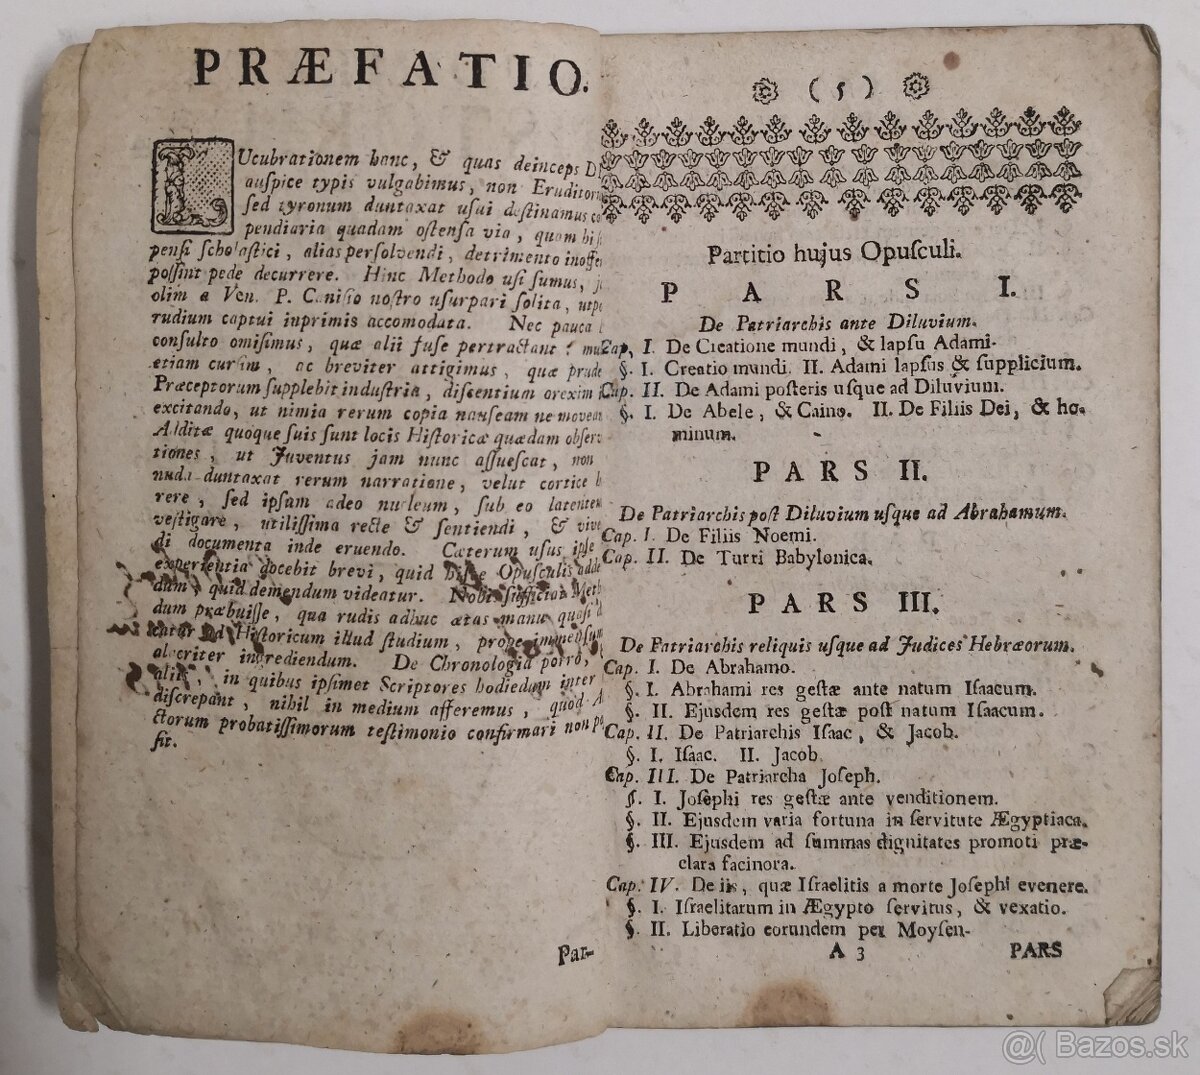 PRÆFATIO.
LUcubrationem hanc, & quas deinceps D
auſpice typis vulgabimus, non Eruditor
ſed tyronum duntaxat uſui deſtinamus co
pendiaria quadam oſtenſa via, quam hi
penſi ſcholaſtici, alias perſolvendi, detrimento inoffe
poſſint pede decurrere. Hinc Methodo uſi ſumus, j
olim a Ven. P. Caniſio noſtro uſurpari ſolita, utp
rudium captui inprimis accomodata. Nec pauca
conſulto omiſimus, quæ alii fuſe pertractant: mu
etiam curſim, ac breviter attigimus, quæ prude
Præceptorum ſupplebit induſtria, diſcentium orexim
excitando, ut nimia rerum copia nauſeam ne movea
Additæ quoque ſuis ſunt locis Hiſtoricæ quædam obſerv
tiones, ut Juventus jam nunc aſſueſcat, non
nuda duntaxat rerum narratione, velut cortice h
rere, ſed ipſum adeo nucleum, ſub eo latentem
veſtigare, utiliſſima recte & ſentiendi, & vive
di documenta inde eruendo. Cæterum uſus ipſe
experientia docebit brevi, quid hiſce Opuſculis adde
dum, quid demendum videatur. Nobis ſufficiat Meth
dum præbuiſſe, qua rudis adhuc ætas manu quaſi d
catur ad Hiſtoricum illud ſtudium, prope immenſum
alacriter ingrediendum. De Chronologia porro,
aliis, in quibus ipſimet Scriptores hodiedum inter
diſcrepant, nihil in medium afferemus, quod A
ctorum probatiſſimorum teſtimonio confirmari non po
ſit.
Par-
( 5 )
Partitio hujus Opuſculi.
PARS I.
De Patriarchis ante Diluvium.
Cap. I. De Creatione mundi, & lapſu Adami.
§. I. Creatio mundi. II. Adami lapſus & ſupplicium.
Cap. II. De Adami poſteris uſque ad Diluvium.
§. I. De Abele, & Caino. II. De Filiis Dei, & ho-
minum.
PARS II.
De Patriarchis poſt Diluvium uſque ad Abrahamum.
Cap. I. De Filiis Noemi.
Cap. II. De Turri Babylonica.
PARS III.
De Patriarchis reliquis uſque ad Judices Hebræorum.
Cap. I. De Abrahamo.
§. I. Abrahami res geſtæ ante natum Iſaacum.
§. II. Ejusdem res geſtæ poſt natum Iſaacum.
Cap. II. De Patriarchis Iſaac, & Jacob.
§. I. Iſaac. II. Jacob.
Cap. III. De Patriarcha Joſeph.
§. I. Joſephi res geſtæ ante venditionem.
§. II. Ejusdem varia fortuna in ſervitute Ægyptiaca.
§. III. Ejusdem ad ſummas dignitates promoti præ-
clara facinora.
Cap. IV. De iis, quæ Iſraelitis a morte Joſephi evenere.
§. I. Iſraelitarum in Ægypto ſervitus, & vexatio.
§. II. Liberatio eorundem per Moyſen.
A 3 PARS
@( Bazos.sk